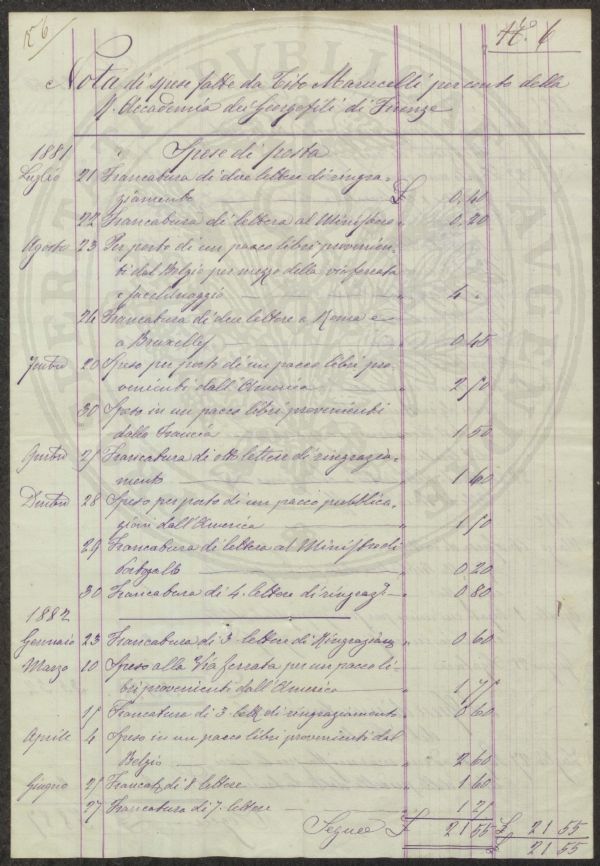 N. 6
N.º 6
Nota di spese fatte da Tito Marucelli per conto della
R. Accademia dei Georgofili di Firenze
1881 Spese di posta
Luglio 21 Francatura di due lettere di ringra-
ziamento £ 0,40
22 Francatura di lettera al Ministero " 0,20
Agosto 23 Per porto di un pacco libri provenien-
ti dal Belgio per mezzo della via ferrata
e facchinaggio " 4 "
24 Francatura di due lettere a Roma e
a Bruxelles " 0,45
7mbre 20 Spese per porto di un pacco libri pro-
venienti dall'America " 2 50
30 Speso in un pacco libri provenienti
dalla Francia " 1 50
9mbre 25 Francatura di otto lettere di ringrazia-
mento " 1 60
Dmbre 28 Speso per porto di un pacco pubblica-
zioni dall'America " 1 50
29 Francatura di lettera al Ministro di
Portogallo " 0 20
30 Francatura di 4. lettere di ringrazi " 0 80
1882
Gennaio 23 Francatura di 3 lettere di Ringraziam " 0 60
Marzo 10 Speso alla Via ferrata per un pacco li-
bri provenienti dall'America " 1 75
15 Francatura di 3. lett di ringraziamento " 0 60
Aprile 4 Speso in un pacco libri provenienti dal
Belgio " 2 60
Giugno 25 Francat di 8 lettere " 1 60
27 Francatura di 7. lettere " 1 25
Segue £ 21 55 £ 21 55
" 21 55